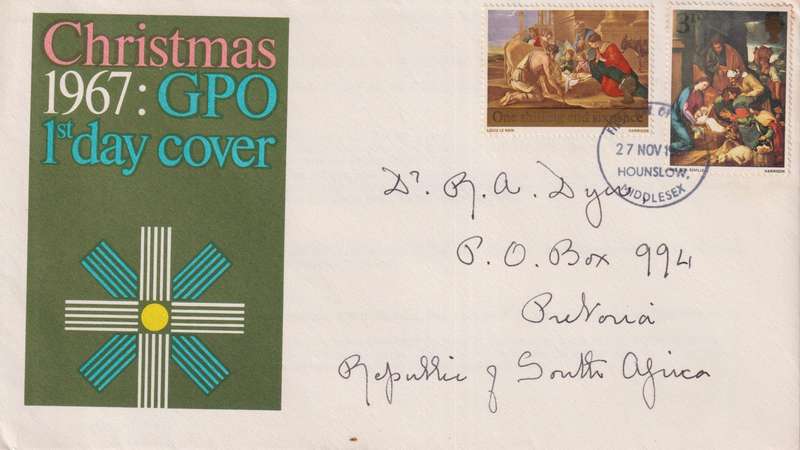 Christmas
1967: GPO
1st day cover
One shilling and sixpence
LOUIS LE NAIN HARRISON
3D
HARRISON
27 NOV 19
HOUNSLOW,
MIDDLESEX
Dr. R. A. Dyer,
P. O. Box 994
Pretoria
Republic of South Africa